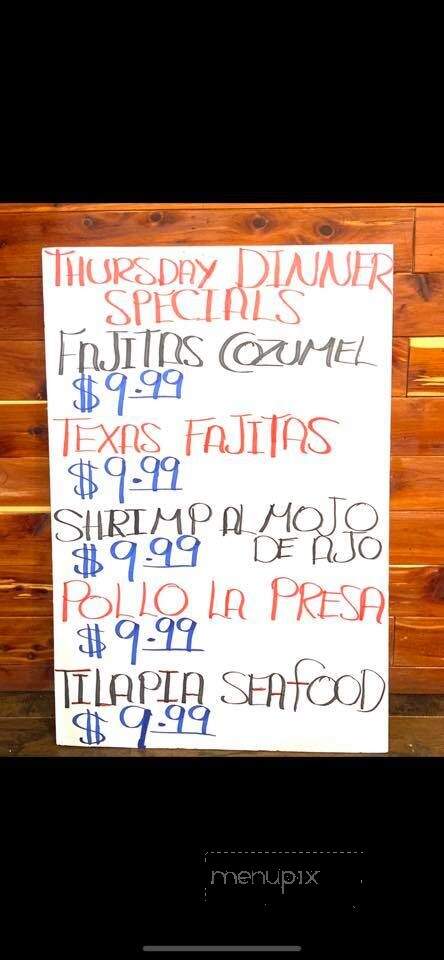 THURSDAY DINNER
SPECIALS
FAJITAS COZUMEL
$9.99
TEXAS FAJITAS
$9.99
SHRIMP AL MOJO
DE AJO
$9.99
POLLO LA PRESA
$9.99
TILAPIA SEAFOOD
$9.99
menupix